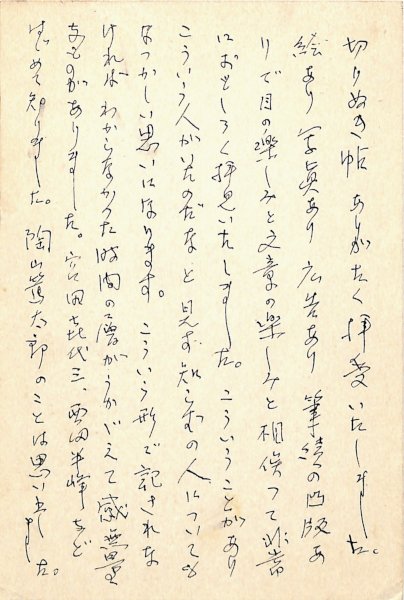 切りぬき帖 ありがたく拝受いたしました。
絵あり 写真あり 広告あり 筆蹟の凸版あ
りで目の楽しみと文章の楽しみと相俟つて非常
におもしろく拝見いたしました。こういうことがあり
こういう人がいたのだな、と見ず知らずの人についても
なつかしい思いになります。こういう形で記されな
ければわからなかつた時間の層がうかがえて感無量
なものがありました。宮田㐂代三、西田半峰など
はじめて知りました。陶山篤太郎のことは思い出しました。